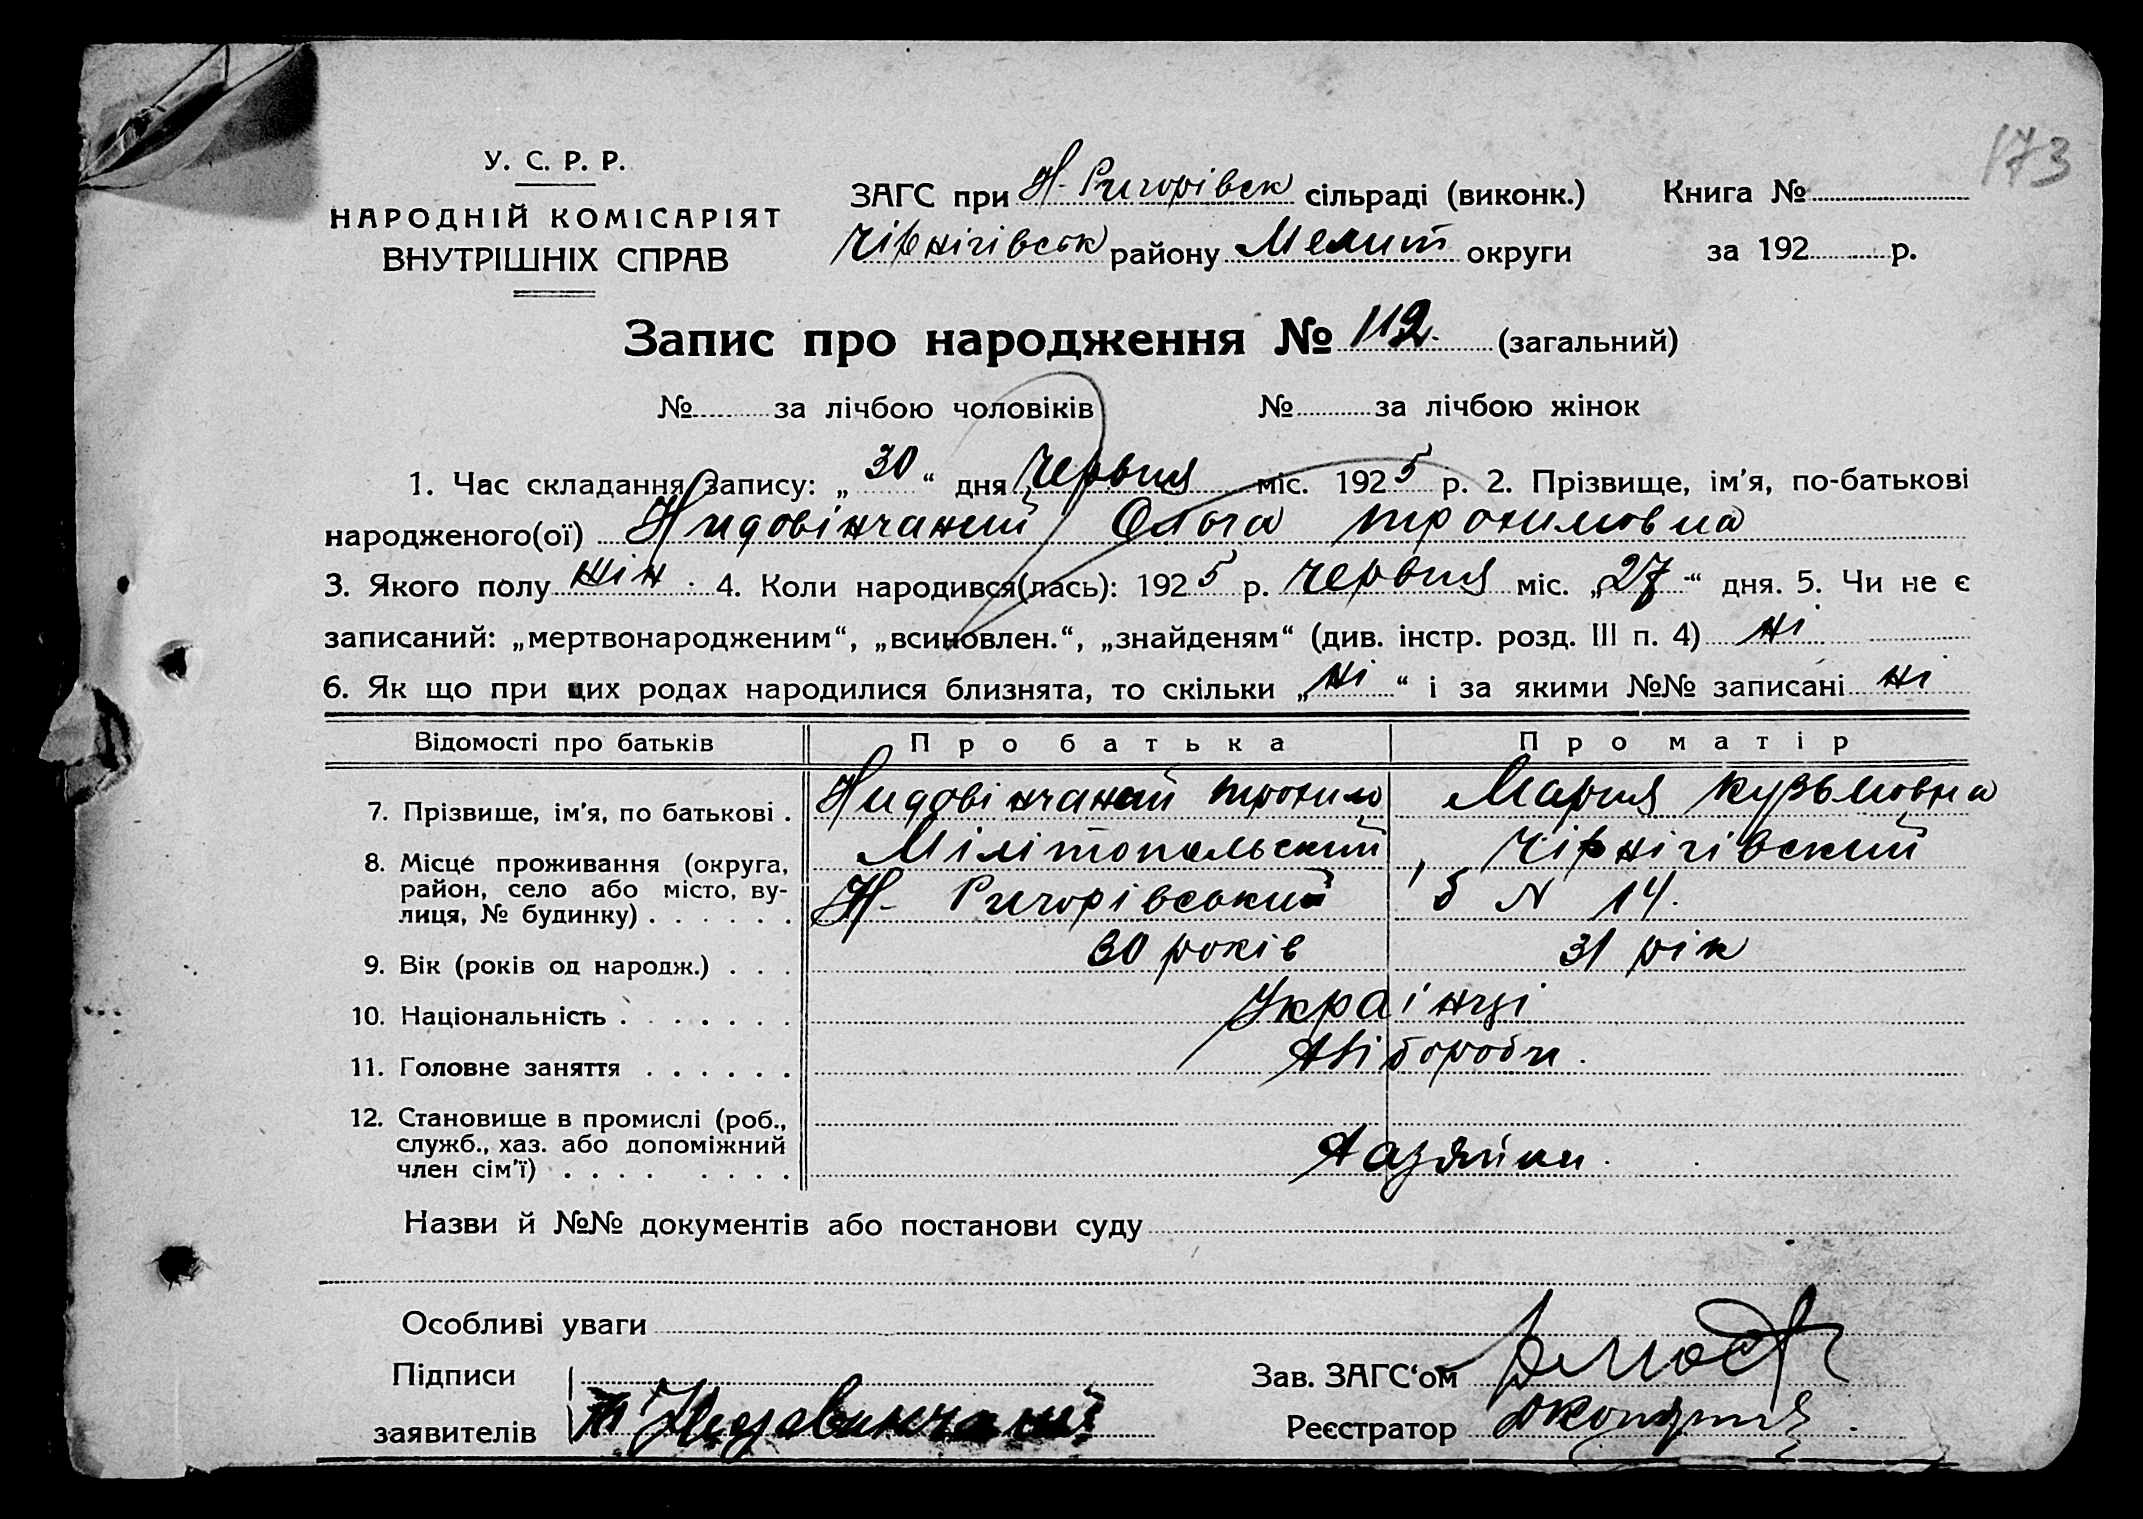 173
У. С. Р. Р.
НАРОДНІЙ КОМІСАРІЯТ
ВНУТРІШНІХ СПРАВ
ЗАГС при Н-Ригорівск сільраді (виконк.)
Чірнігівськ району Мелит округи
Книга №
за 192 р.
Запис про народження № 112. (загальний)
№ за лічбою чоловіків № за лічбою жінок
1. Час складання запису: „30“ дня Червня міс. 1925 р. 2. Прізвище, ім'я, по-батькові
народженого(ої) Нидовінчаний Ольга трохимовна
3. Якого полу жін. 4. Коли народився(лась): 1925 р. Червня міс. „27“ дня. 5. Чи не є
записаний: „мертвонародженим“, „всиновлен.“, „знайденям“ (див. інстр. розд. III п. 4) ні
6. Як що при цих родах народилися близнята, то скільки „ні“ і за якими №№ записані ні
Відомості про батьків Про батька Про матір
7. Прізвище, ім'я, по батькові . Нидовінчаний трохим Мария кузьмовна
8. Місце проживання (округа, район, село або місто, вулиця, № будинку) . . . . . . Мілітопольский, Чірнігівский
Н- Ригорівський б N 14.
9. Вік (років од народж.) . . . 30 років 31 рік
10. Національність . . . . . . . Українці
11. Головне заняття . . . . . . Хліборобчи.
12. Становище в промислі (роб., служб., хаз. або допоміжний член сім'ї) . . . . . . . . Хазяїни.
Назви й №№ документів або постанови суду
Особливі уваги
Підписи
заявителів Недавинчаний
Зав. ЗАГС'ом
Реєстратор